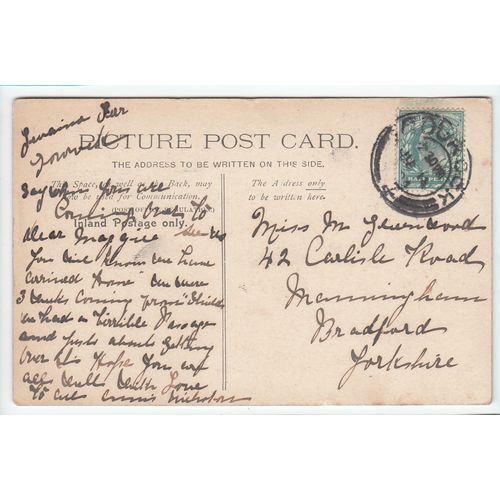 PICTURE POST CARD.
THE ADDRESS TO BE WRITTEN ON THIS SIDE.
This Space, as well as the Back, may
now be used for Communication.
(POST OFFICE REGULATION)
Inland Postage only.
The Address only
to be written here.
HALF PENNY
GOUROCK
Say when you are
Coming over to
see us
dear Maggie
You will know we have
arrived Home we were
3 weeks coming from Shields
we had a Terrible Passage
and just about getting
over it Hope you are
all well with Love
to all Nicholson
Miss M Greenwood
42 Carlisle Road
Manningham
Bradford
Yorkshire